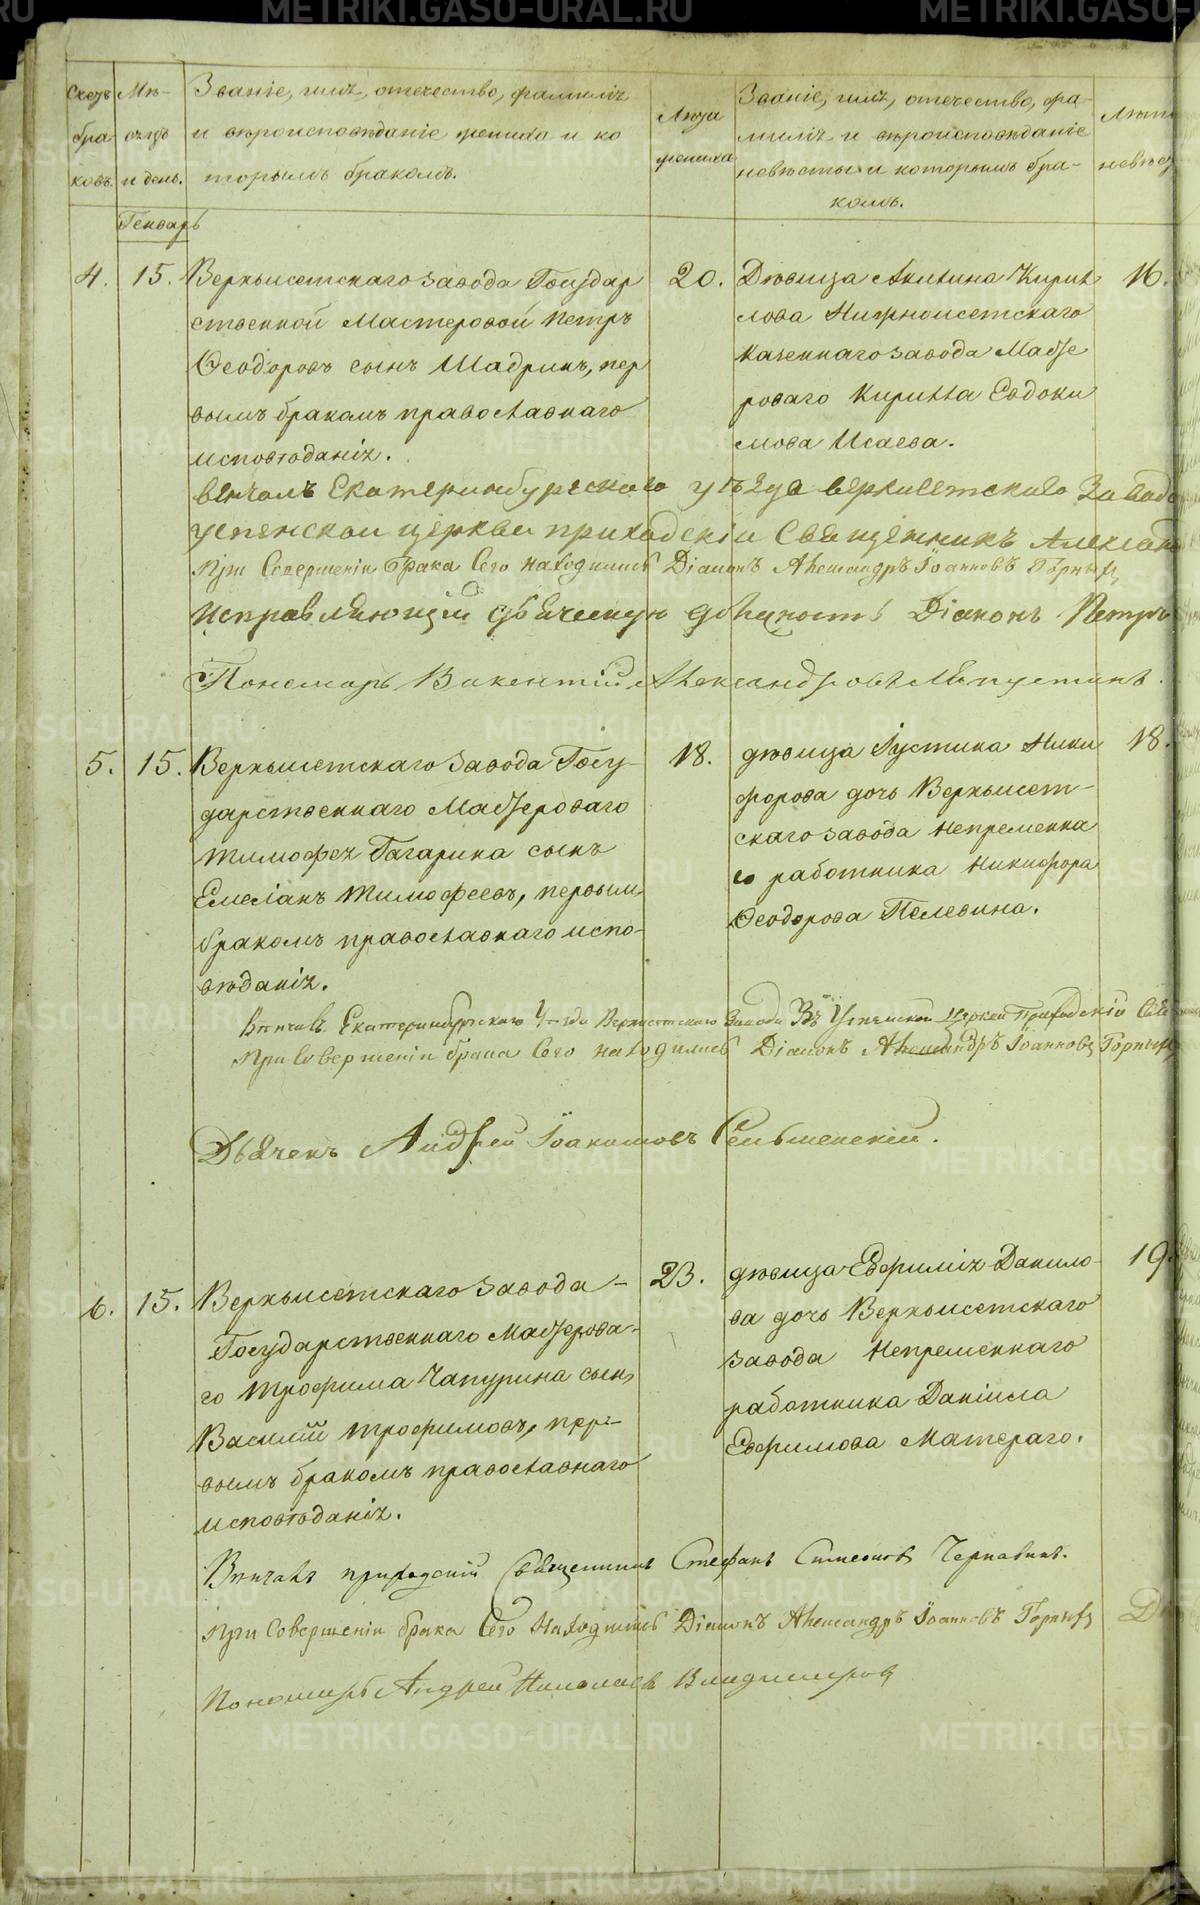 METRIKI.GASO-URAL.RU
Счетъ браковъ.
Мѣсяцъ и день.
Званіе, имя, отечество, фамилія
и вѣроисповѣданіе жениха и ко
торымъ бракомъ.
Лѣта жениха
Званіе, имя, отечество, фа-
милія и вѣроисповѣданіе
невѣсты и которымъ бра-
комъ.
Генварь
4.
15.
Верхъисетскаго завода Государ
ственной Мастеровой Петръ
Ѳеодоровъ сынъ Шадринъ, пер
вымъ бракомъ православнаго
исповѣданія.
20.
Дѣвица Акилина Кирил
лова Нижноисетскаго
казеннаго завода Масте
роваго Кирилла Евдоки
мова Исаева.
16.
венчалъ Екатеринбурскаго уѣзда верхисетскаго Завода
успенскои церкви приходскіи Священникъ
При Совершеніи брака Сего находились Діаконъ Александръ Іоанновъ
исправляющій дьяческую должность Діаконъ Петръ
Пономарь Викентій Александровъ
5.
15.
Верхъисетскаго завода Госу-
дарственнаго Мастероваго
Тимофея Гагарина сынъ
Емеліанъ Тимофеевъ, первым
бракомъ православнаго испо-
вѣданія.
18.
дѣвица Іустина Ники
форова дочь Верхъисет-
скаго завода непременна
го работника Никифора
Ѳеодорова Пелевина.
18.
Вѣнчалъ Екатеринбургскаго Уѣзда Верхисетскаго Завода Въ Успенской Церкви Приходскій
При Совершеніи брака Сего находились Діаконъ Александръ Іоанновъ
Дьячекъ Андрей Іоакимовъ
6.
15.
Верхъисетскаго завода
Государственнаго Мастерова-
го Трофима Чапурина сынъ
Василій Трофимовъ, пер-
вымъ бракомъ православнаго
исповѣданія.
23.
дѣвица Евфимія Данило-
ва дочь Верхъисетскаго
завода непременнаго
работника Даніила
Евфимова Матераго.
19.
Вѣнчалъ приходскій Священникъ Стефанъ Симеоновъ Чернавинъ.
При Совершеніи брака Сего Находились Діаконъ Александръ Іоанновъ
Пономарь Андрей Николаевъ Владимировъ